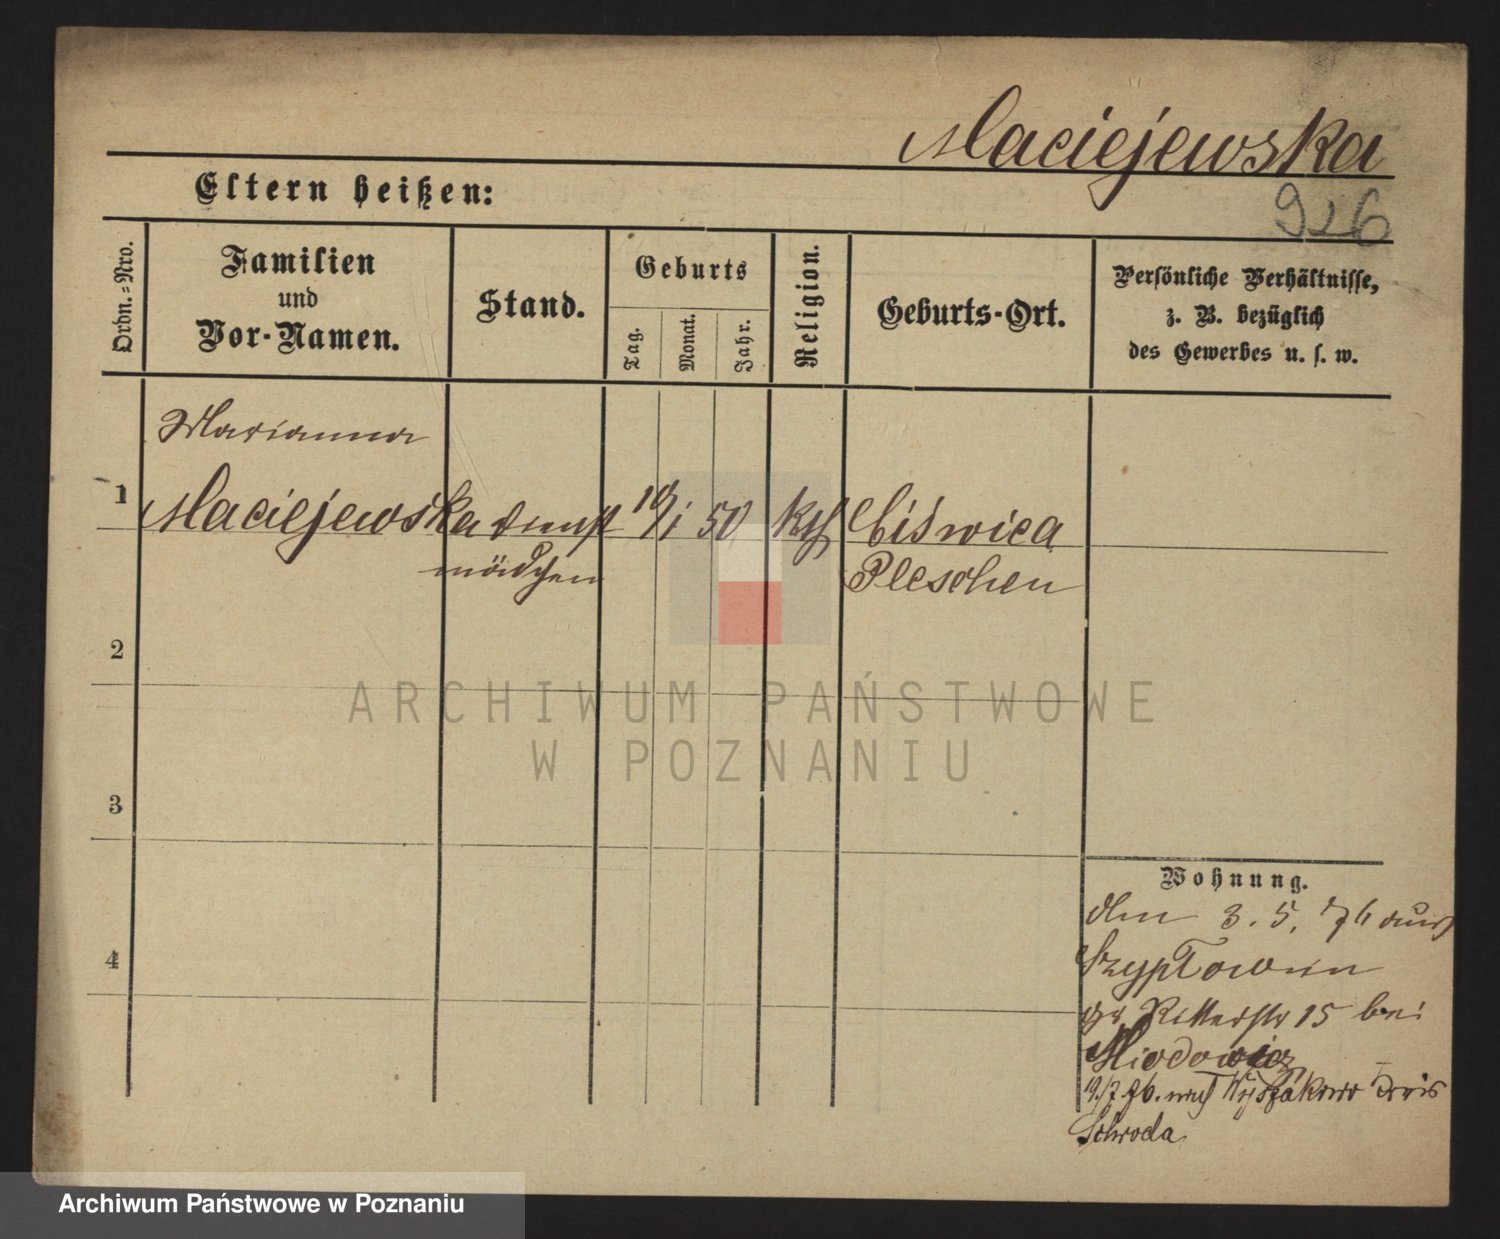 Maciejewska
926
Eltern heißen:
Ordn.=Nro.
Familien
und
Vor-Namen.
Stand.
Geburts
Tag.
Monat.
Jahr.
Religion.
Geburts-Ort.
Persönliche Verhältnisse,
z. B. bezüglich
des Gewerbes u. s. w.
Marianna
1 Maciejewska Dienst 10/1 50 kth
mädchen Pleschen
2
3
4
Wohnung.
den 3. 5. 76 aus
gr Ritterstr 15 bei
Miodowicz
19./7.76. nach Kreis
Schroda
ARCHIWUM PAŃSTWOWE
W POZNANIU
Archiwum Państwowe w Poznaniu